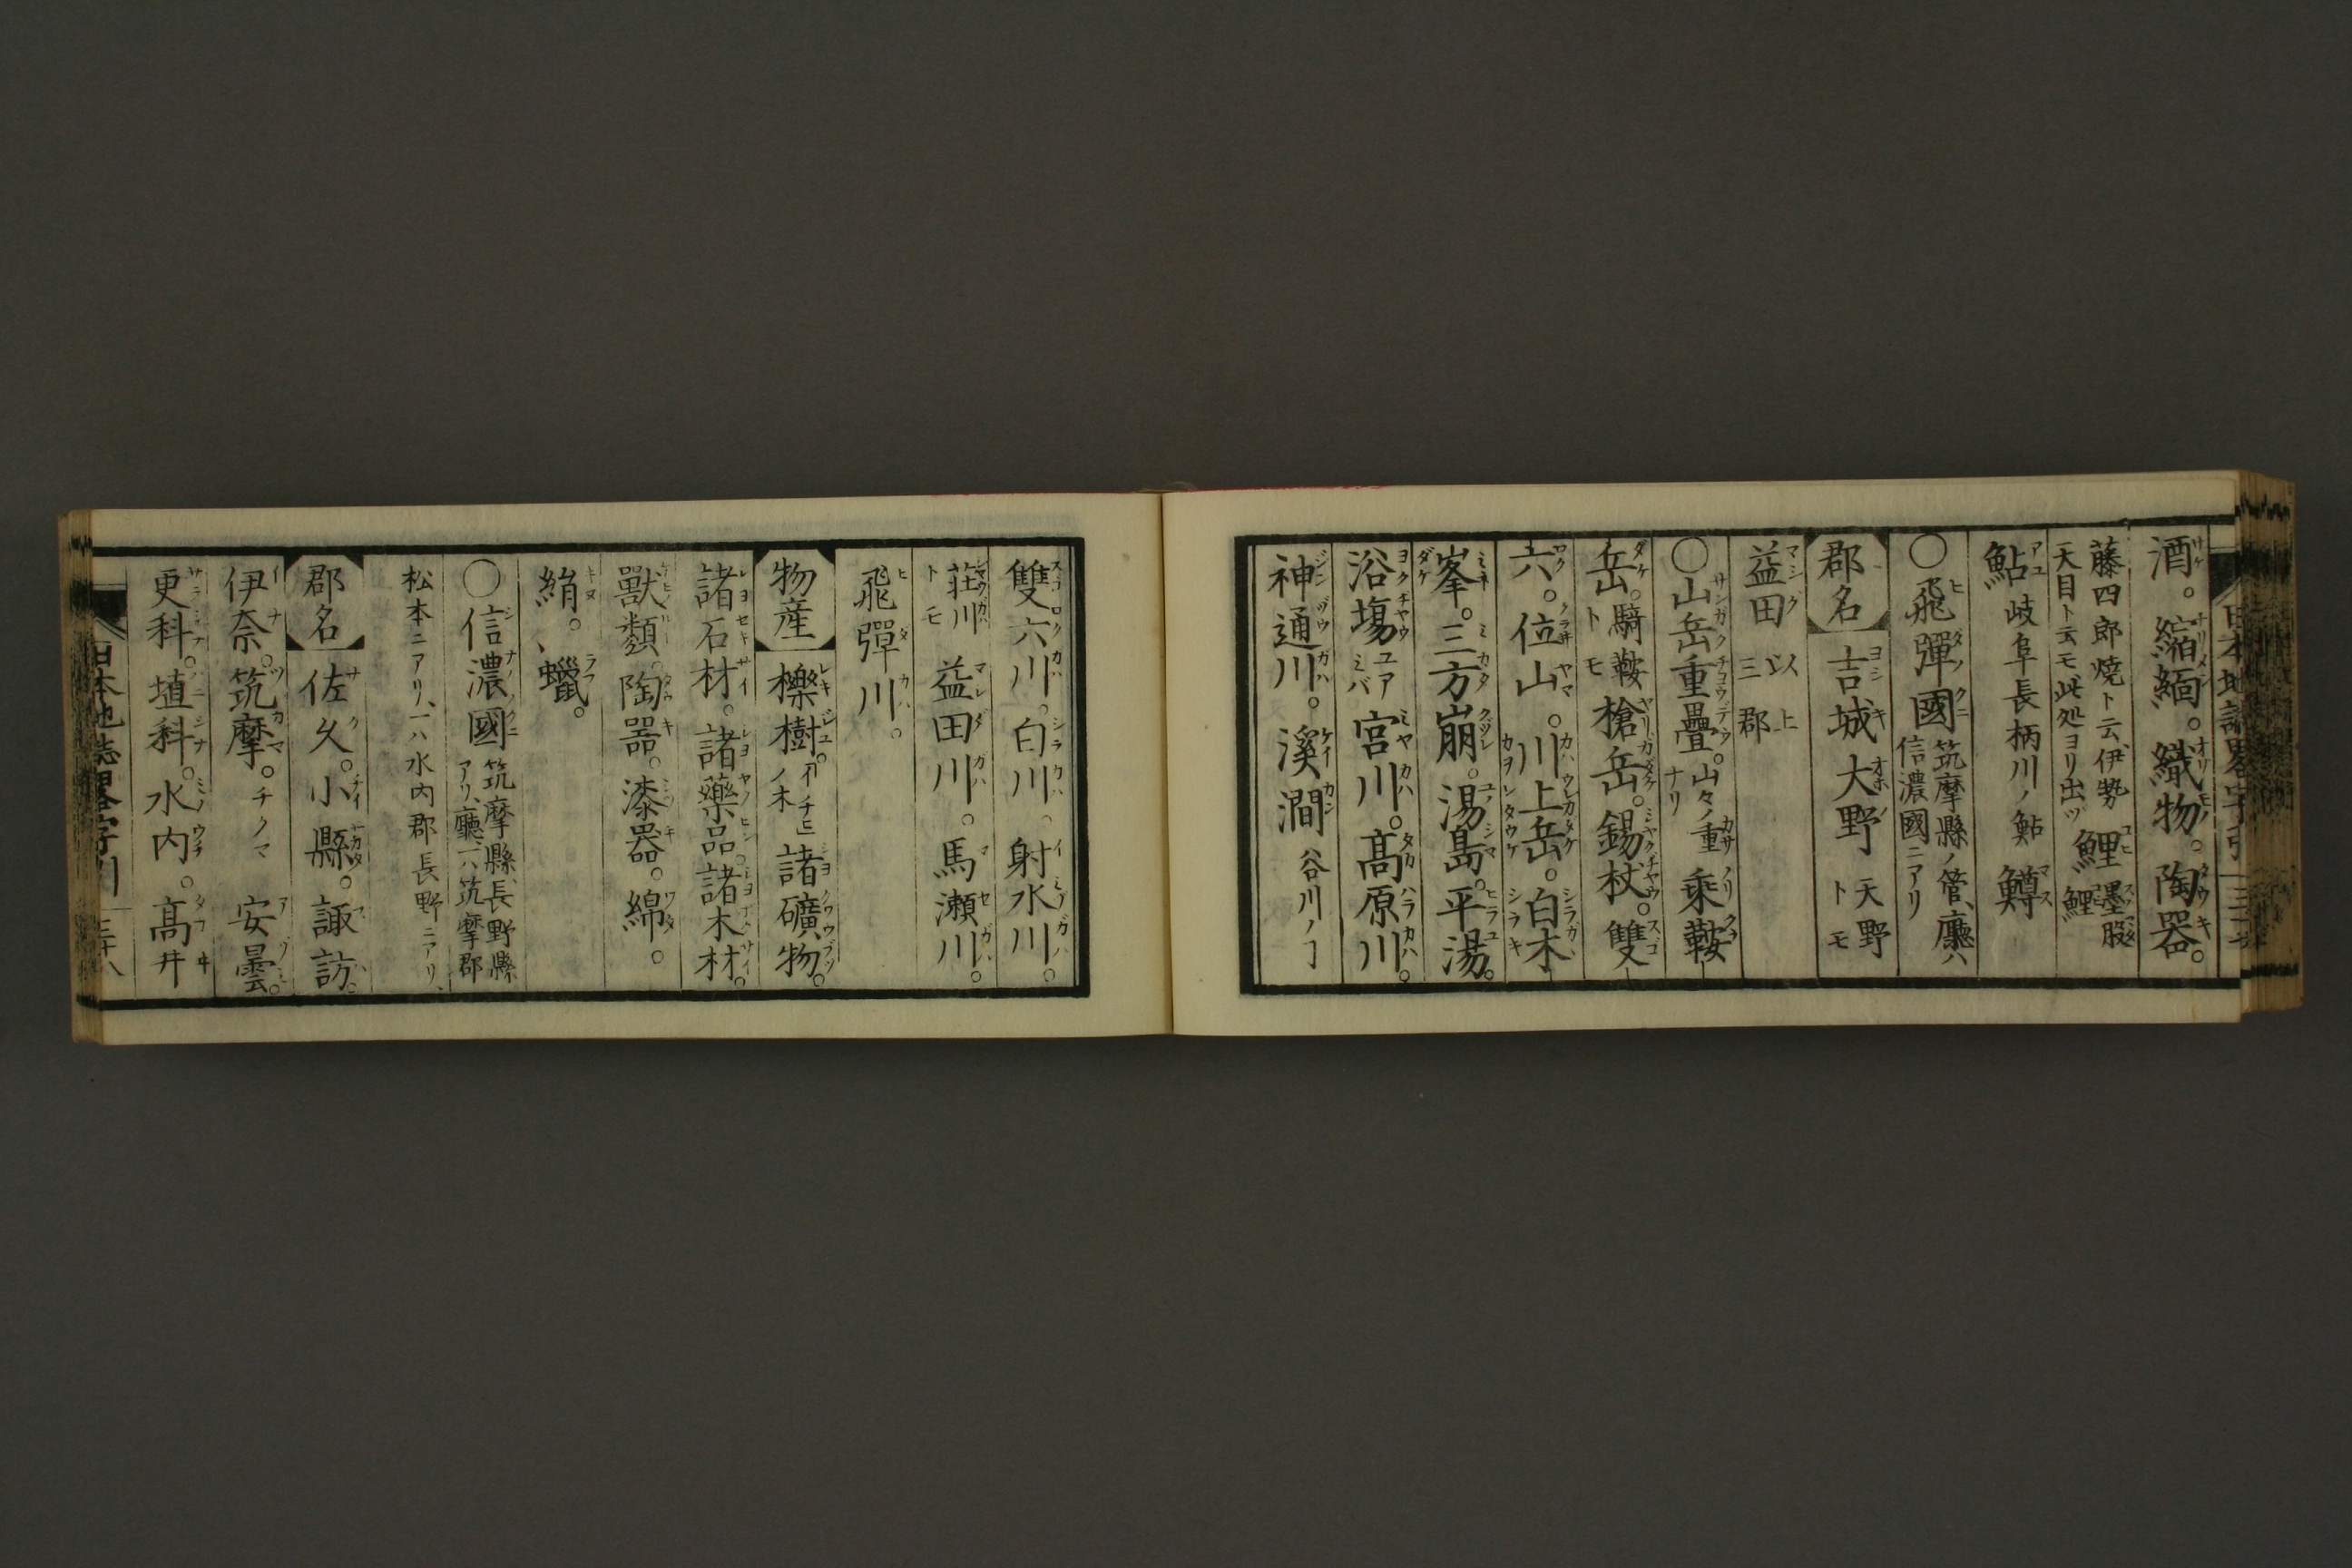 酒。縮緬。織物。陶器。
藤四郎焼ト云伊勢天目ト云モ此処ヨリ出ツ 鯉 墨股鯉
鮎 岐阜長柄川ノ鮎 鱒
〇飛彈國 筑摩縣ノ管、廳ハ信濃國ニアリ
郡名 吉城 大野 天野トモ
益田 以上三郡
〇山岳重疊。山々ノ重ナリ 乗鞍
岳。騎鞍トモ 槍岳。錫杖。雙
六。位山。川上岳。白木
峯。三方崩。湯島。平湯。
浴塲 ユアミバ 宮川。高原川。
神通川。溪澗 谷川ノヿ
雙六川。白川。射水川。
荘川トモ 益田川。馬瀬川。
飛彈川。
物産 櫟樹。イチヒノ木 諸礦物。
諸石材。諸藥品。諸木材。
獸類。陶器。漆器。綿。
絹。蠟。
〇信濃國 筑摩縣、長野縣アリ、廳、一ハ筑摩郡
松本ニアリ、一ハ水内郡長野ニアリ、
郡名 佐久。小縣。諏訪。
伊奈。筑摩。チクマ 安曇。
更科。埴科。水内。高井